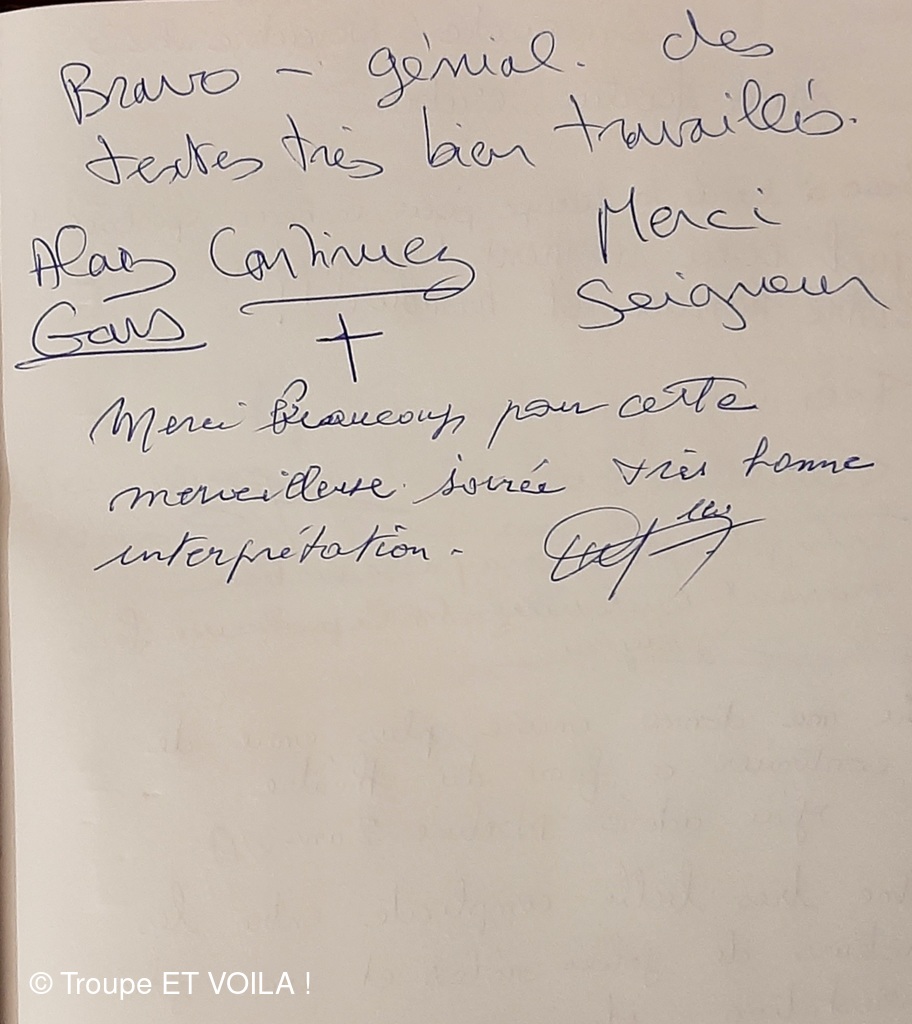 Bravo – génial. des
textes très bien travaillés.
Continuez
Gars
Merci
Seigneur
Merci Beaucoup pour cette
merveilleuse soirée très bonne
interprétation -
© Troupe ET VOILA !